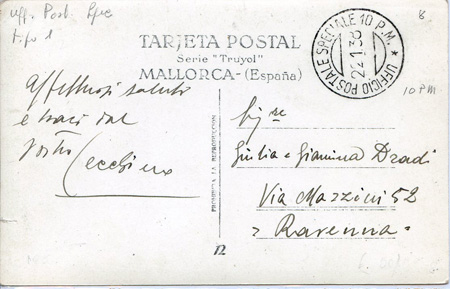 uff. Post. Spec
tipo 1
8
UFFICIO POSTALE SPECIALE 10 P.M. *
22.1.38
TARJETA POSTAL
Serie "Truyol"
MALLORCA-(España)
10 PM
Affettuosi saluti
e baci dal
vostro
Cecchino
PROHIBIDA LA REPRODUCCIÓN
Sig.re
Giulia e Giannina Dradi
Via Mazzini 52
Ravenna
12